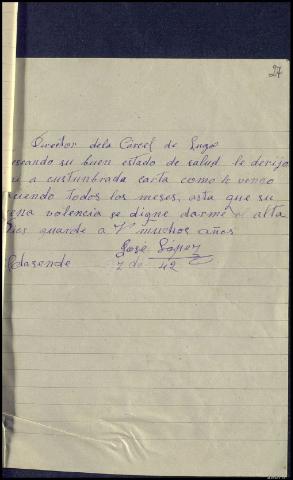 27
Director dela Carcel de Lugo
eseando su buen estado de salud le derijo
a custunbrada carta como le vengo
ciendo todos los meses, asta que su
ena volencia se digne darme el alta
Dios guarde a V muchos años
José López
Adasende 7 de 42